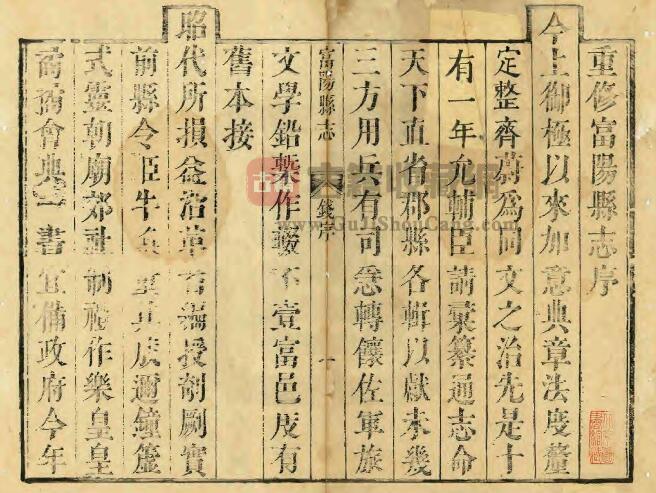 重修富陽縣志序
今上御極以來加意典章法度釐
定整齊蔚爲同文之治先是十
有一年允輔臣請彙纂通志命
天下直省郡縣各輯以獻未幾
三方用兵有司急轉饟佐軍旅
富陽縣志
錢序
一
文學鉛槧作輟不壹富邑有
舊本接
昭代所損益沿革編授剞劂實
前縣令臣牛奐董其成邇鐘簴
式靈朝廟郊社制禮作樂皇皇
裔裔會典一書宜備政府今年
www.GuJiShouCang.com